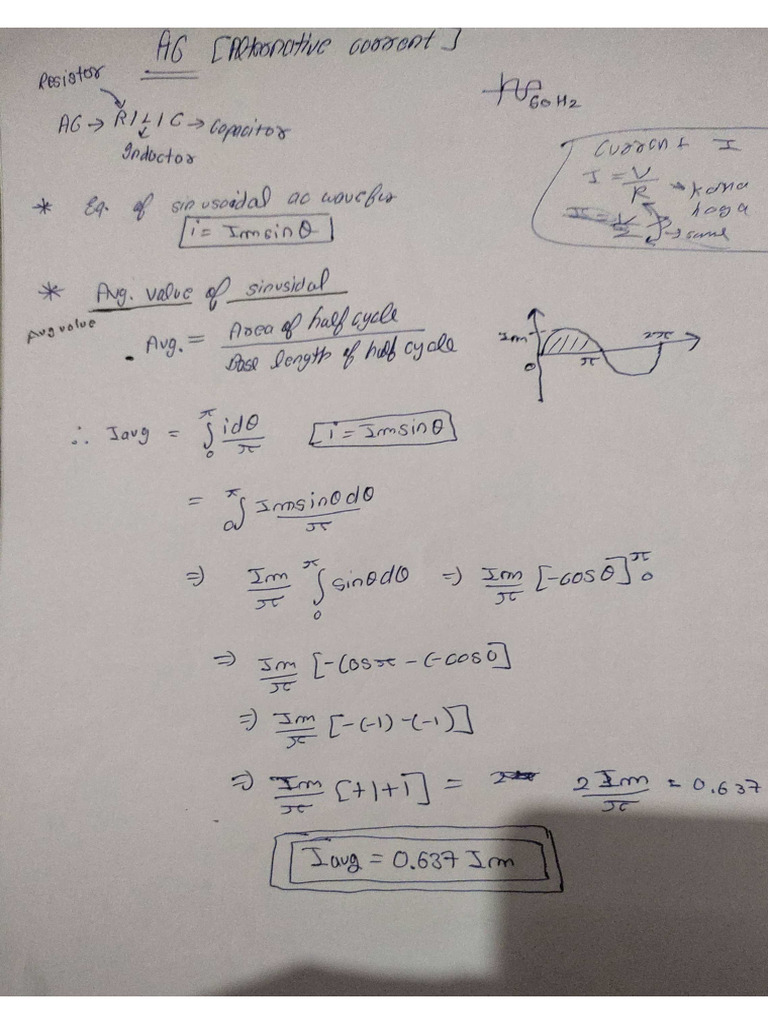 AC [Alternative current]
Resistor
AC → R/L/C → Capacitor
Inductor
60Hz
Current I
I = V/R → kona hoga
I = V/Z → same
* Eq. of sinusoidal ac wavefor
i = Im sin θ
* Avg. value of sinusidal
Avg value
• Avg. = Area of half cycle / Base length of half cycle
Im
0 π 2π
∴ Iavg = ∫₀^π i dθ / π [i = Im sin θ]
= ∫₀^π Im sin θ dθ / π
⇒ Im/π ∫₀^π sin θ dθ ⇒ Im/π [-cos θ]₀^π
⇒ Im/π [-cos π - (-cos 0]
⇒ Im/π [-(-1) -(-1)]
⇒ Im/π [+1+1] = 2Im/π = 0.637
Iavg = 0.637 Im